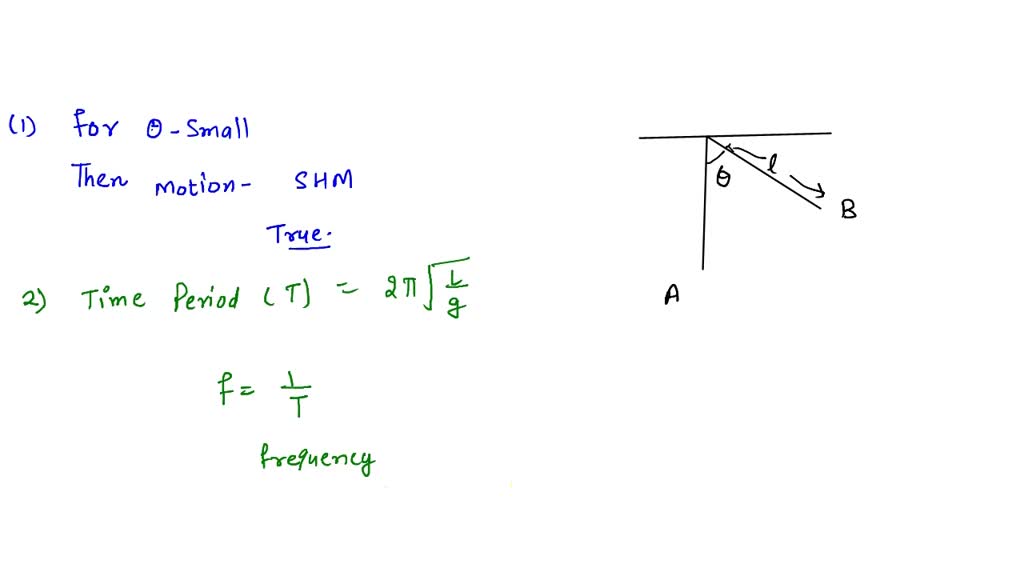 (1) for θ-small
Then motion- SHM
True.
2) Time Period (T) = 2π√L/g
f = 1/T
frequency
θ
l
B
A